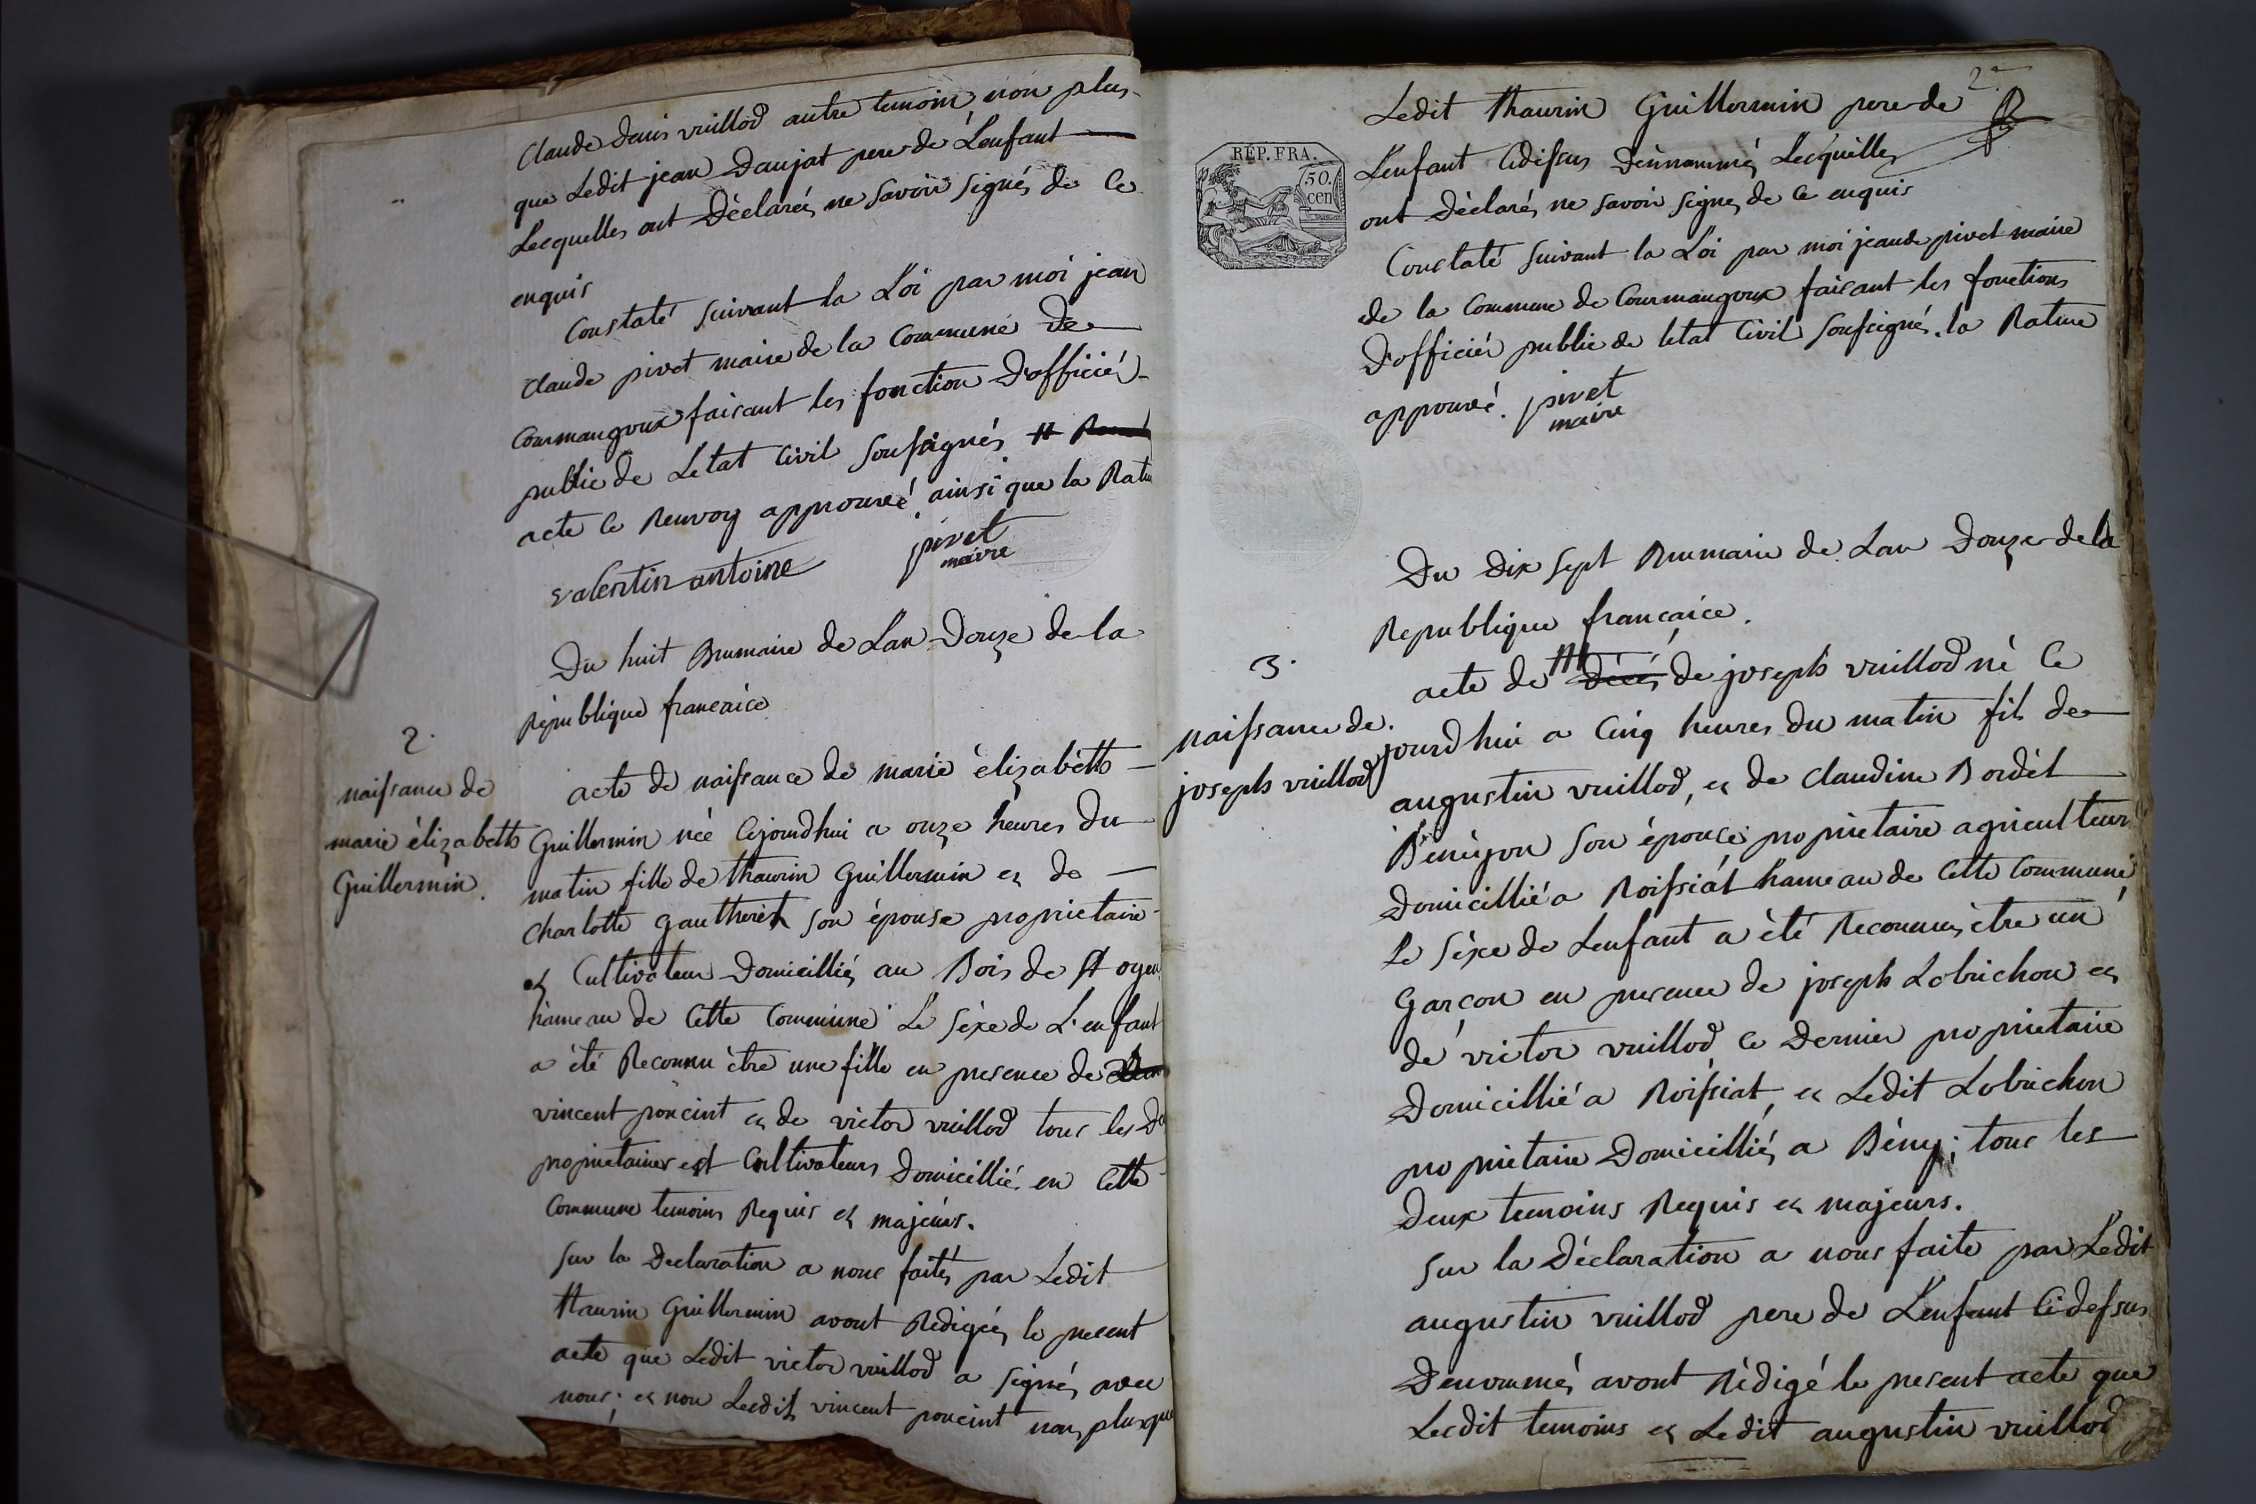 Claude Denis vuillod autre temoin non plus
que Ledit jean Daujat pere de L'enfant
Lesquelles ont Déclarés ne savoir signés de ce
enquis
Constaté suivant la Loi par moi jean
claude pivet maire de la Commune de
Courmangoux faisant les fonction D'officiér
public de Letat Civil soussignés
acte ce Renvoy approuveé ainsi que la Ratu
valentin antoine
pivet
maire
Du huit Brumaire de Lan Douze de la
République francaice
2.
naissance de
marie èlizabeth
Guillermin.
acte de naissance de marie èlizabeth
Guillermin neé Cejourdhui a onze heures Du
matin fille de thaurin Guillermin et de
Charlotte Gautheret son épouse proprietaire
et Cultivateur Domicilliés au Bois de St oyen
hameau de Cette Commune Le sèxe de L'enfant
a été Reconnu ètre une fille en presence de
vincent poncint et de victor vuillod tous les D
proprietaires est Cultivateurs Domicillié en Cette
Commune temoins Requis et majeurs.
sur la Declaration a nous faites par Ledit
thaurin Guillermin avont Redigées le present
acte que Ledit victor vuillod a signés avec
nous; et non Lesdit vincent poncint non plus que
2
Ledit thaurin Guillermin pere de
L'enfant Cidessus Dénnommés Lesquelles
ont Déclarés ne savoir signes de ce enquis
Constaté suivant la Loi par moi jeande pivet maire
de la Commune de Courmangoux faisant les fonctions
D'officiér public de letat Civil soussigné. la Rature
approuvé.
pivet
maire
RÉP. FRA.
50.
cen
Du dix sept Brumaire de Lan Douze de la
Republique francaice.
3.
naissance de
joseph vuillod
acte de décés de joseph vuillod né Ce
jourdhui a Cinq heures Du matin fils de
augustin vuillod, et de Claudine Bordèt
Benéyon son épouse proprietaire agriculteur
Domicillié a Roissiat hameau de Cette Commune
Le sèxe de Lenfant a èté Reconnus ètre un
Garcon en presence de joseph Lobrichon et
de victor vuillod ce Dernier proprietaire
Domicillié a Roissiat, et Ledit Lobrichon
proprietaire Domicilliés a Bény; tous les
Deux temoins Requis et majeurs.
sur la Déclaration a nous faite par Ledit
augustin vuillod pere de L'enfant Cidessus
Denommés avont Rédigé le present acte que
Lesdit temoins et Ledit augustin vuillod